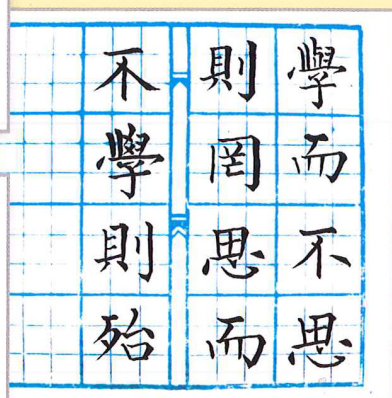 學而不思
則罔思而
不學則殆